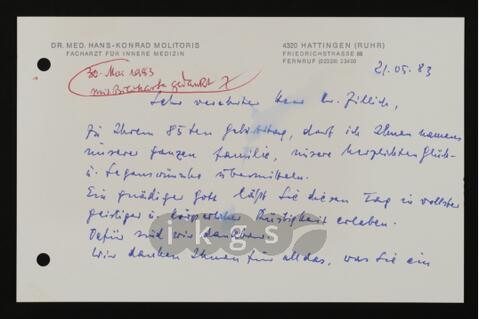 DR. MED. HANS-KONRAD MOLITORIS
FACHARZT FÜR INNERE MEDIZIN
4320 HATTINGEN (RUHR)
FRIEDRICHSTRASSE
FERNRUF (02324) 23400
30. Mai 1983
mit Briefkarte gedankt
21.05.83
Sehr verehrter Herr Dr. Zillich,
Zu Ihrem 85ten Geburtstag, darf ich Ihnen namens
unserer ganzen Familie, unsere herzlichsten Glück-
u. Segenswünsche übermitteln.
Ein gnädiger Gott läßt Sie diesen Tag in vollster
geistiger u. körperlicher Rüstigkeit erleben.
Dafür sind wir dankbar.
Wir danken Ihnen für all das, was Sie ein
ikgs